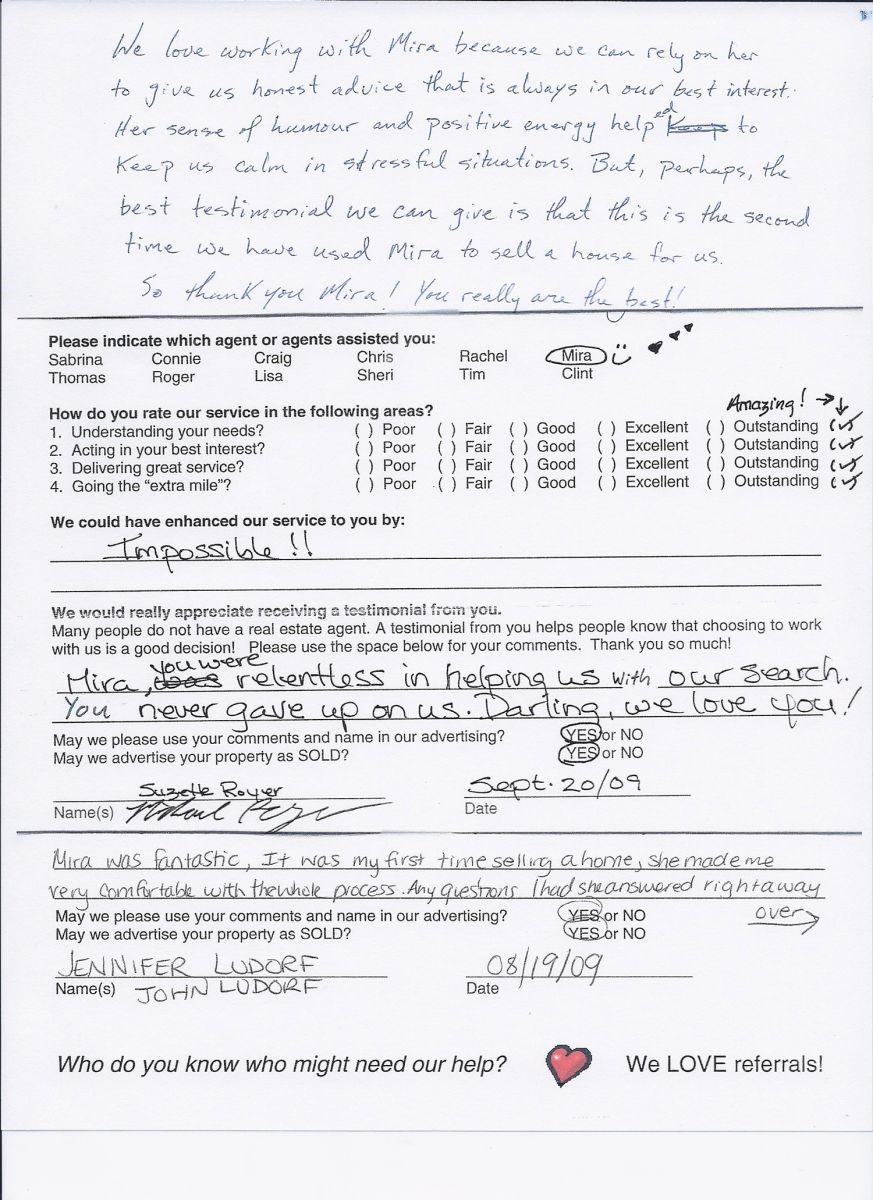 We love working with Mira because we can rely on her
to give us honest advice that is always in our best interest.
Her sense of humour and positive energy helped to
Keep us calm in stressful situations. But, perhaps, the
best testimonial we can give is that this is the second
time we have used Mira to sell a house for us.
So thank you Mira! You really are the best!
Please indicate which agent or agents assisted you:
Sabrina Connie Craig Chris Rachel Mira
Thomas Roger Lisa Sheri Tim Clint
Amazing! → ↓
How do you rate our service in the following areas?
1. Understanding your needs? ( ) Poor ( ) Fair ( ) Good ( ) Excellent ( ) Outstanding (✓)
2. Acting in your best interest? ( ) Poor ( ) Fair ( ) Good ( ) Excellent ( ) Outstanding (✓)
3. Delivering great service? ( ) Poor ( ) Fair ( ) Good ( ) Excellent ( ) Outstanding (✓)
4. Going the “extra mile”? ( ) Poor ( ) Fair ( ) Good ( ) Excellent ( ) Outstanding (✓)
We could have enhanced our service to you by:
Impossible!!
We would really appreciate receiving a testimonial from you.
Many people do not have a real estate agent. A testimonial from you helps people know that choosing to work
with us is a good decision! Please use the space below for your comments. Thank you so much!
Mira, you were relentless in helping us with our search.
You never gave up on us. Darling, we love you!
May we please use your comments and name in our advertising? YES or NO
May we advertise your property as SOLD? YES or NO
Suzette Sept. 20/09
Name(s) Date
Mira was fantastic, It was my first time selling a home, she made me
very comfortable with the whole process. Any questions I had she answered right away
May we please use your comments and name in our advertising? YES or NO over →
May we advertise your property as SOLD? YES or NO
JENNIFER LUDORF 08/19/09
Name(s) JOHN LUDORF Date
Who do you know who might need our help? We LOVE referrals!